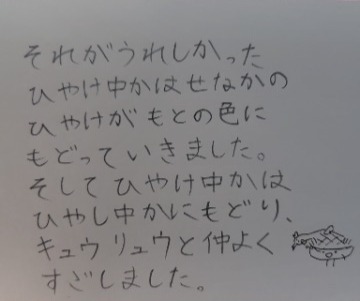 それがうれしかった
ひやけ中かはせなかの
ひやけがもとの色に
もどっていきました。
そしてひやけ中かは
ひやし中かにもどり、
キュウリュウと仲よく
すごしました。